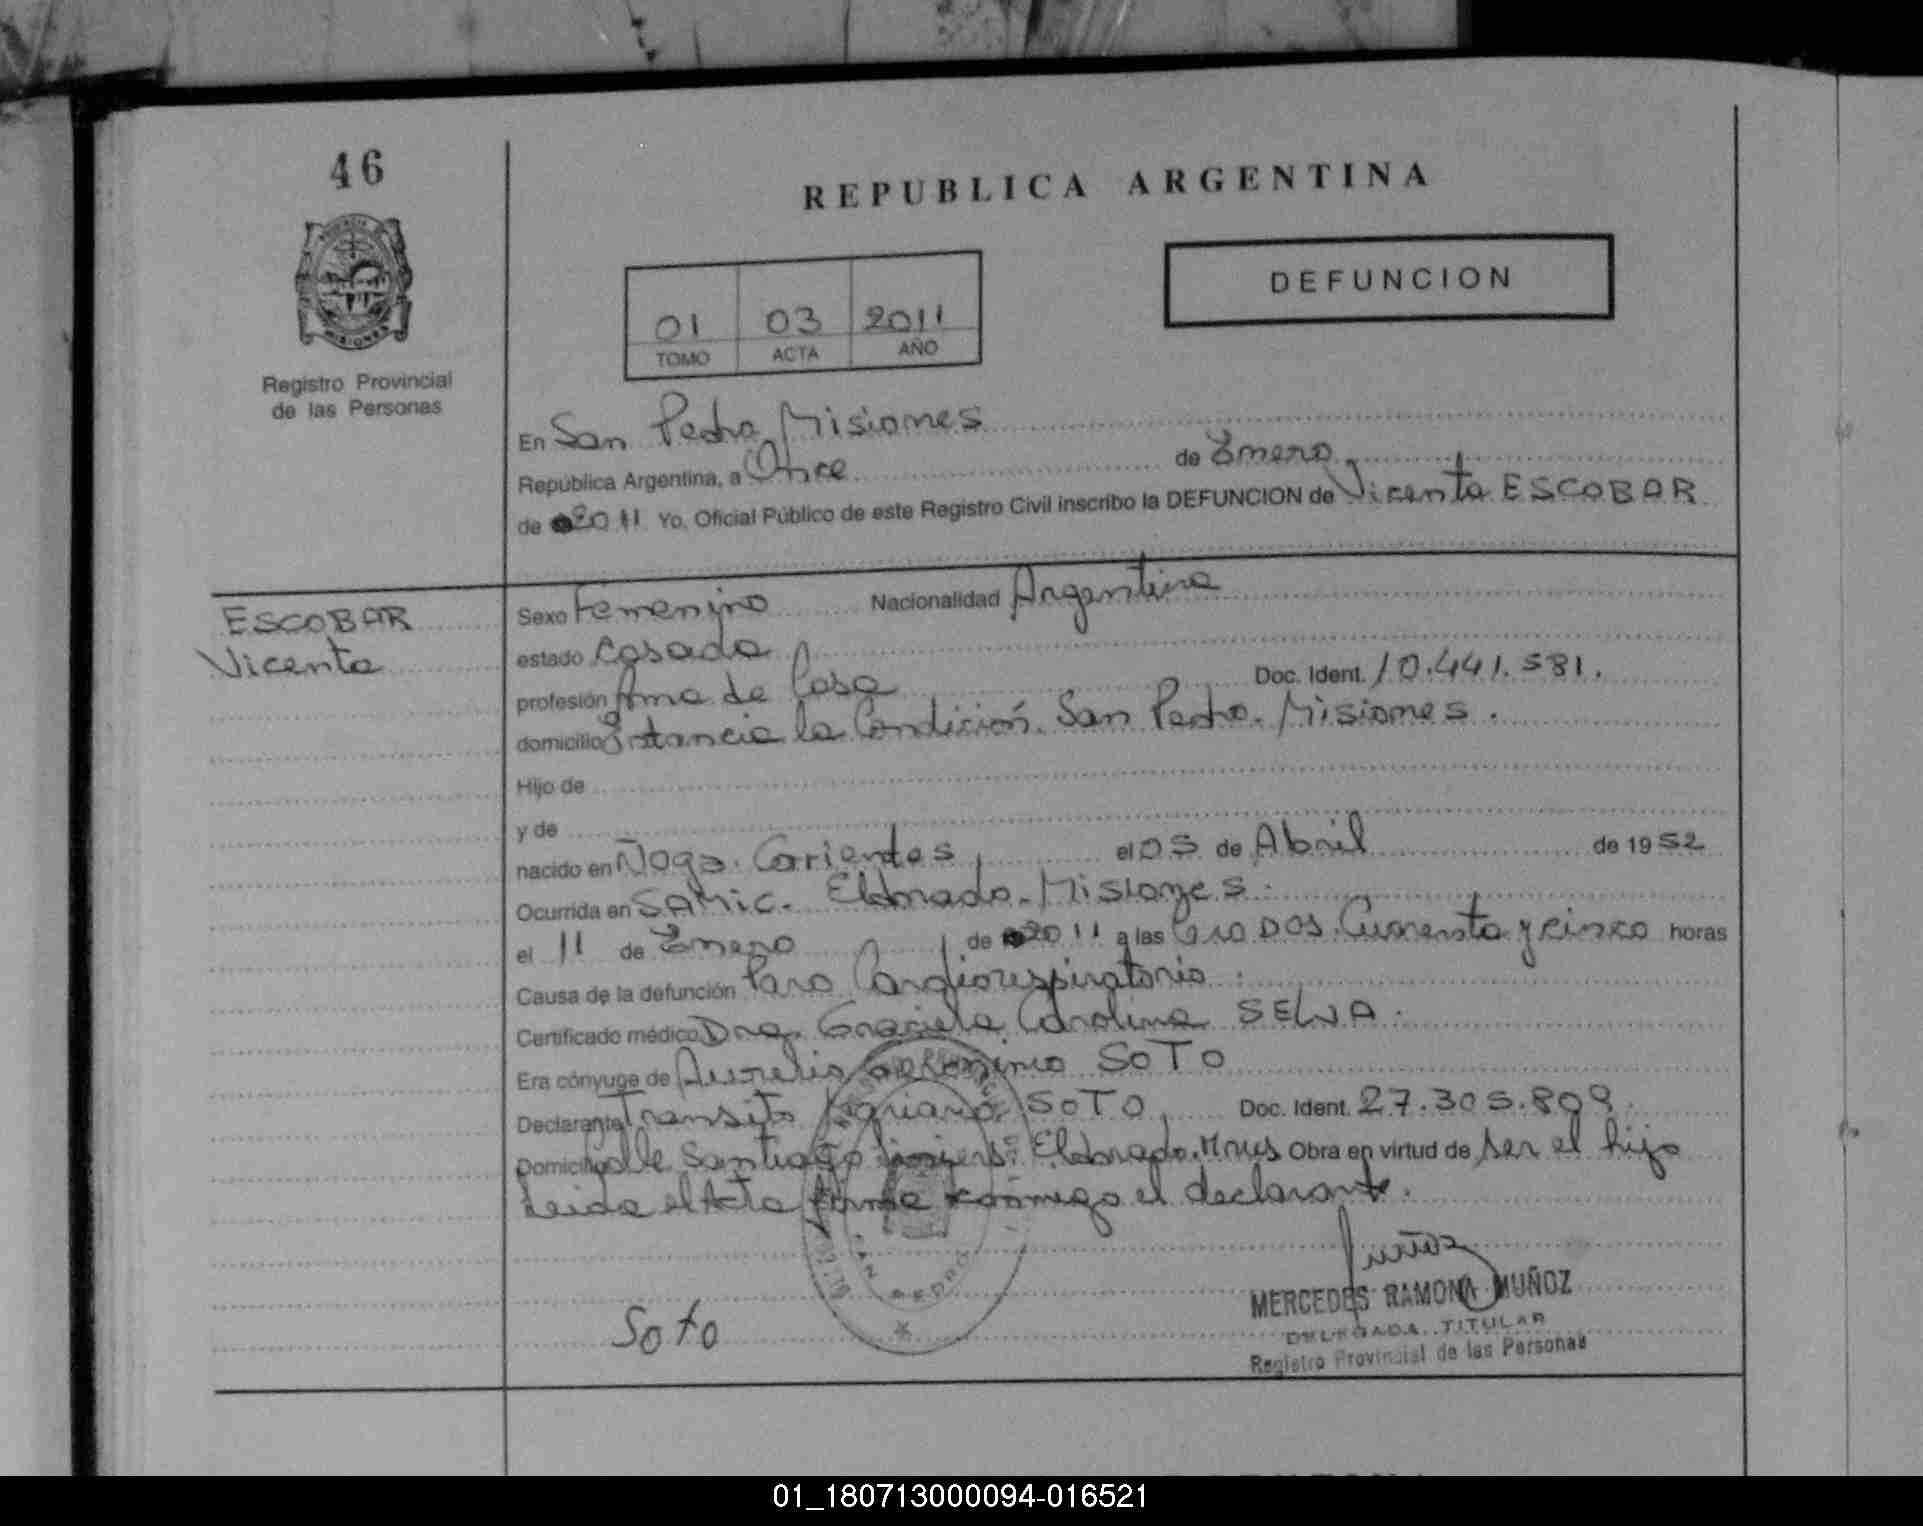 46
REPUBLICA ARGENTINA
DEFUNCION
01 03 2011
TOMO ACTA AÑO
Registro Provincial
de las Personas
En San Pedro Misiones
República Argentina, a Once de Enero
de 2011 Yo, Oficial Público de este Registro Civil inscribo la DEFUNCION de Vicenta ESCOBAR
ESCOBAR
Vicenta
Sexo Femenino Nacionalidad Argentina
estado Casada
profesión Ama de Casa Doc. Ident. 10.441.581.
domicilio Estancia la Condición. San Pedro. Misiones.
Hijo de
y de
nacido en Corrientes, el 05 de Abril de 1952
Ocurrida en SAMIC. Eldorado. Misiones.
el 11 de Enero de 2011 a las Cuarenta y cinco horas
Causa de la defunción Paro Cardiorespiratorio.
Certificado médico Dra. Graciela Carolina SELVA.
Era cónyuge de Aurelio SOTO
Declarante Transito SOTO, Doc. Ident. 27.305.809.
Domicilio Calle Santiago Liniers: Eldorado. Mnes Obra en virtud de ser el hijo
Leida el Acta firma conmigo el declarante.
SAN PEDRO
Soto
MERCEDES RAMONA MUÑOZ
DELEGADA TITULAR
Registro Provincial de las Personas
01_180713000094-016521